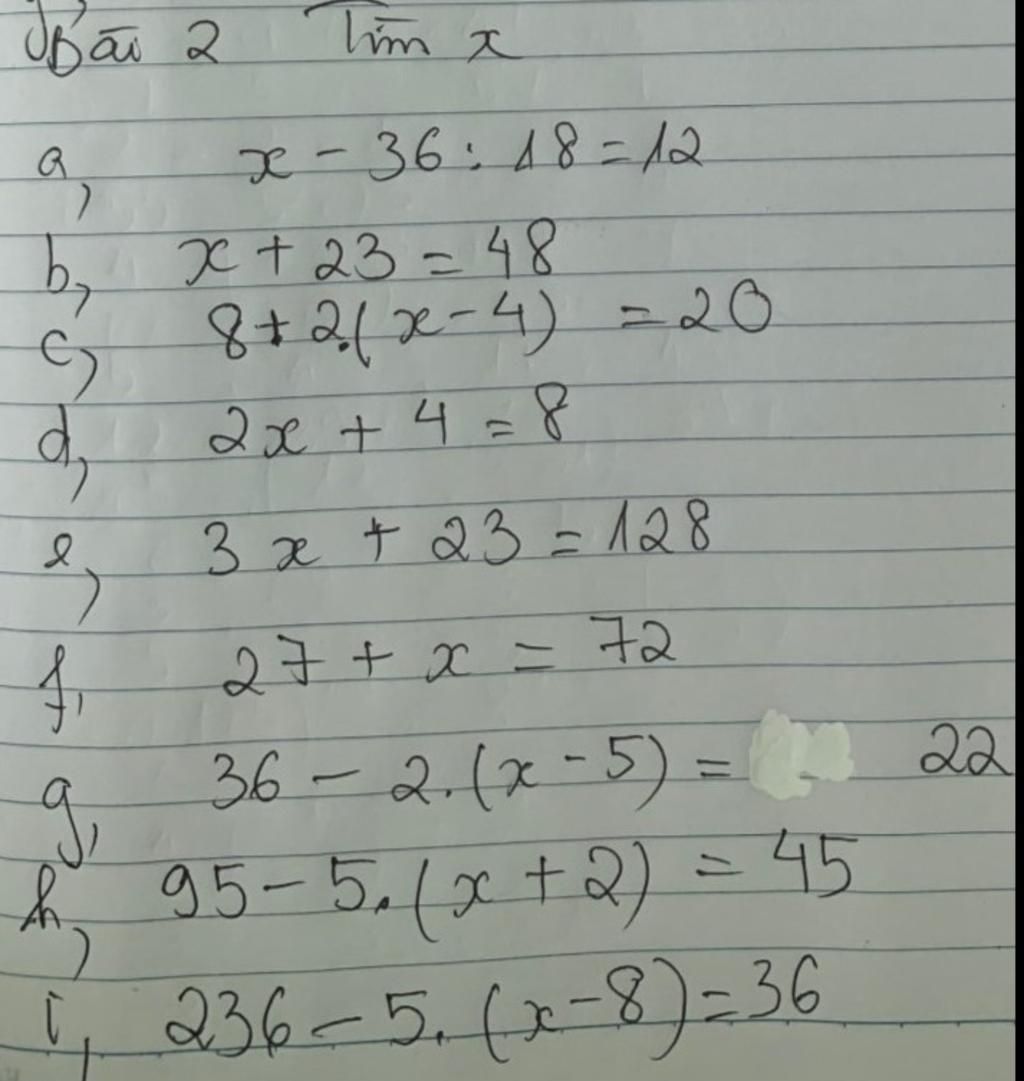 Bài 2 Tìm x
a, x - 36 : 18 = 12
b, x + 23 = 48
c, 8 + 2.(x - 4) = 20
d, 2x + 4 = 8
e, 3x + 23 = 128
f, 27 + x = 72
g, 36 - 2.(x - 5) = 22
h, 95 - 5.(x + 2) = 45
i, 236 - 5.(x - 8) = 36